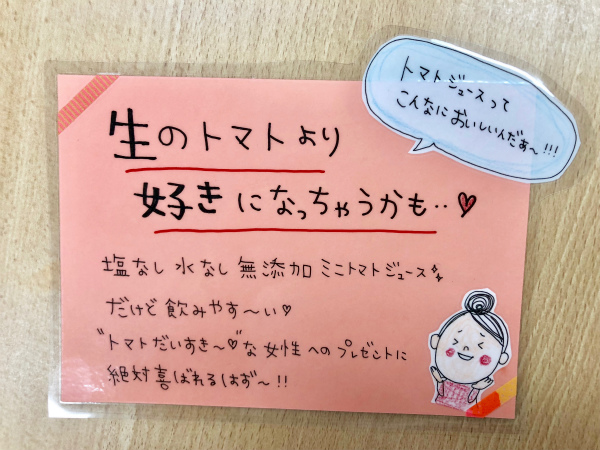 トマトジュースって
こんなにおいしいんだぁ〜!!!
生のトマトより
好きになっちゃうかも‥♥
塩なし 水なし 無添加 ミニトマトジュース
だけど 飲みやす〜い♡
"トマトだいすき〜♥"な 女性への プレゼントに
絶対喜ばれるはず〜!!